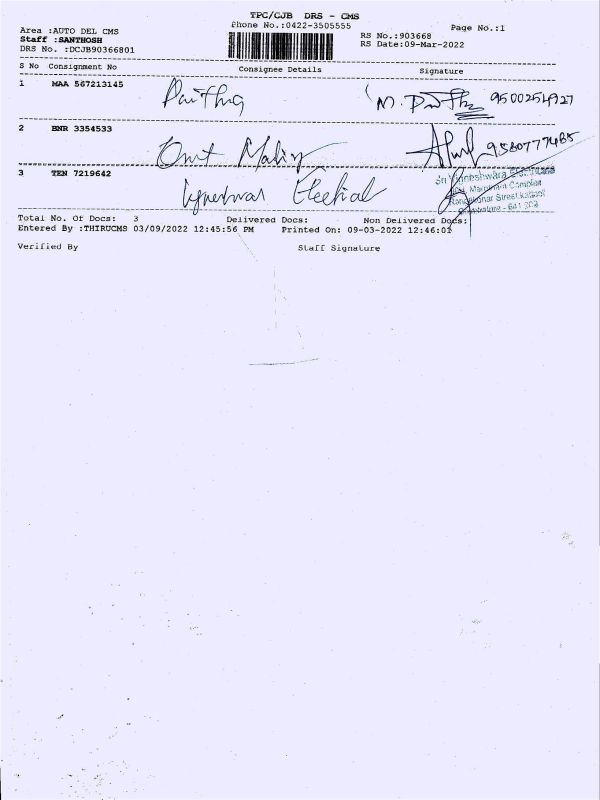 TPC/CJB DRS - CMS
Phone No.:0422-3505555
Page No.:1
Area :AUTO DEL CMS
Staff :SANTHOSH
DRS No. :DCJB90366801
RS No.:903668
RS Date:09-Mar-2022
S No Consignment No Consignee Details Signature
1 MAA 567213145 9500254727
2 BNR 3354533 9580777485
3 TEN 7219642
Sri Vigneshwara
Complex
Street
- 641
Total No. Of Docs: 3 Delivered Docs: Non Delivered Docs:
Entered By :THIRUCMS 03/09/2022 12:45:56 PM Printed On: 09-03-2022 12:46:01
Verified By Staff Signature